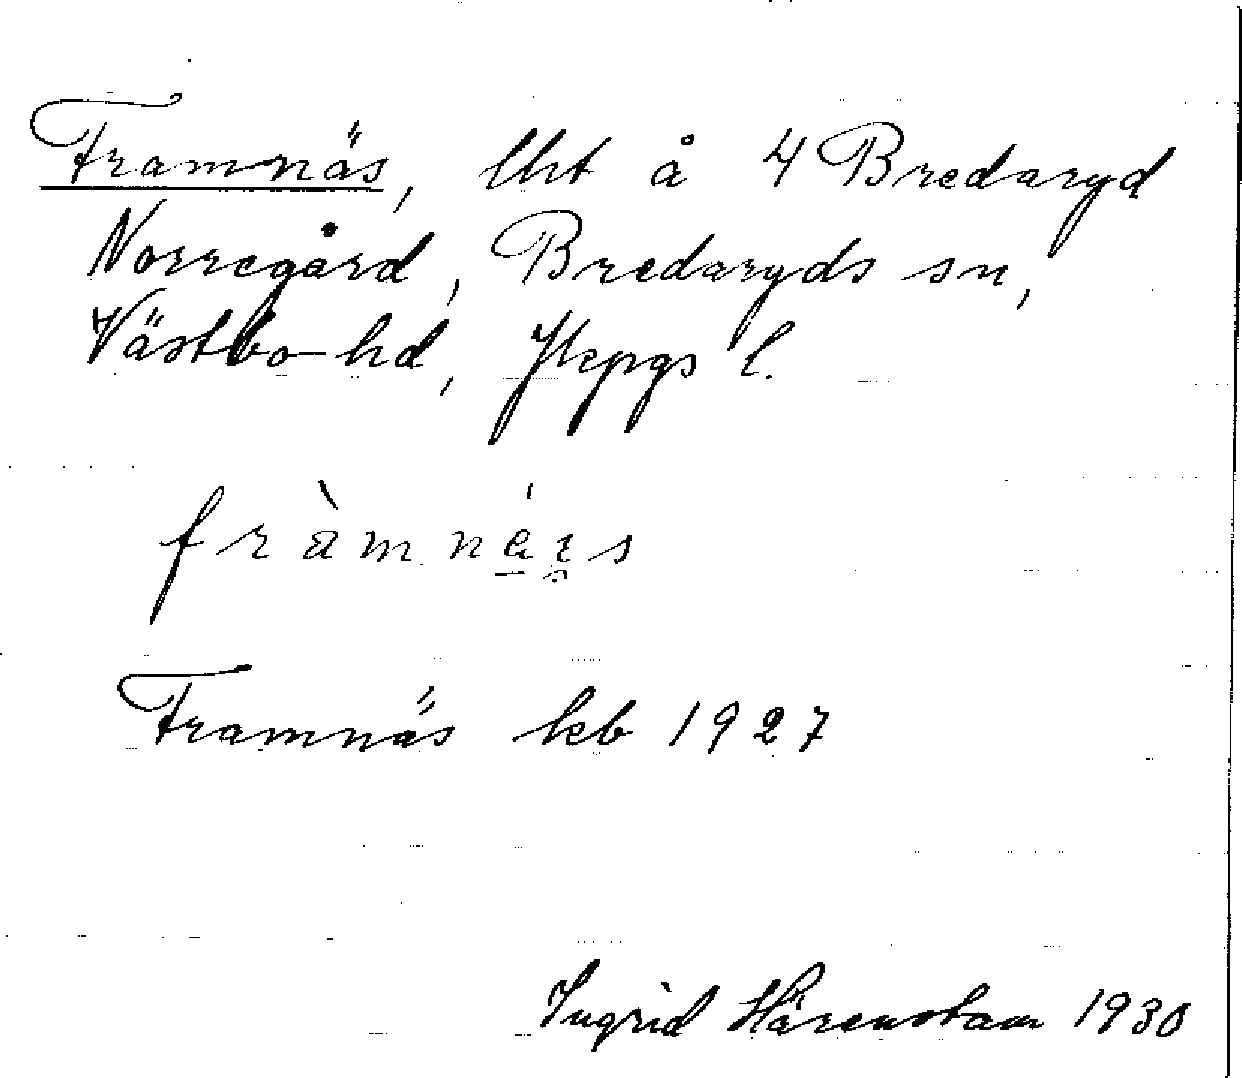 Framnäs, lht å 4 Bredaryd
Norregård, Bredaryds sn,
Västbo hd, Jkpgs l.
Framnäs kb 1927
Ingrid Härenstam 1930